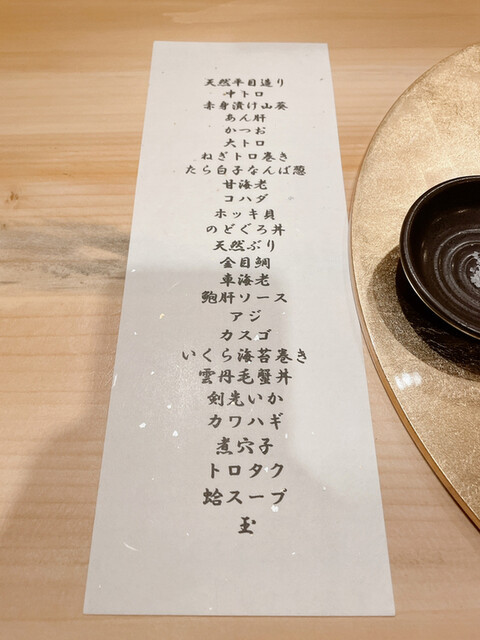 天然平目造り
中トロ
赤身漬け山葵
あん肝
かつお
大トロ
ねぎトロ巻き
たら白子なんば葱
甘海老
コハダ
ホッキ貝
のどぐろ丼
天然ぶり
金目鯛
車海老
鮑肝ソース
アジ
カスゴ
いくら海苔巻き
雲丹毛蟹丼
剣先いか
カワハギ
煮穴子
トロタク
蛤スープ
玉